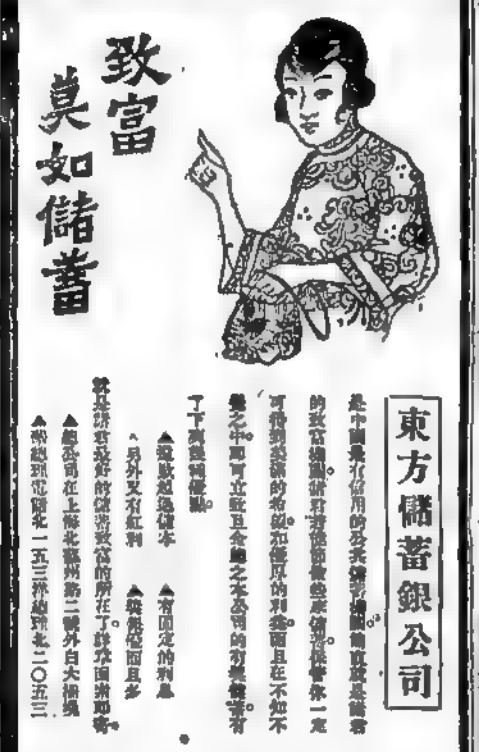 致富
莫如儲蓄
東方儲蓄銀公司
是中國最有信用的公共儲蓄機關簡直就是諸君
的致富機關諸君若能節儉些來儲蓄保管你一定
可得到最穩的希望和優厚的利益而且在不知不
覺之中
而且
之本公司的有獎儲蓄有
了下列幾種優點
▲還款超過儲本
▲有固定的利息
▲另外又有紅利
▲獎額優而且多
就是諸君最好的儲蓄致富的所在了詳章函索即寄
▲總公司在上海北蘇州路二號外白大橋堍
▲電話北一五三
北二〇五三